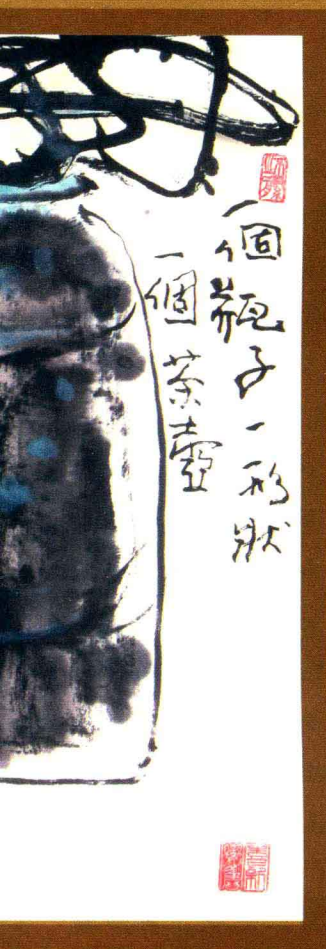 一個瓶子一形狀
一個茶壺